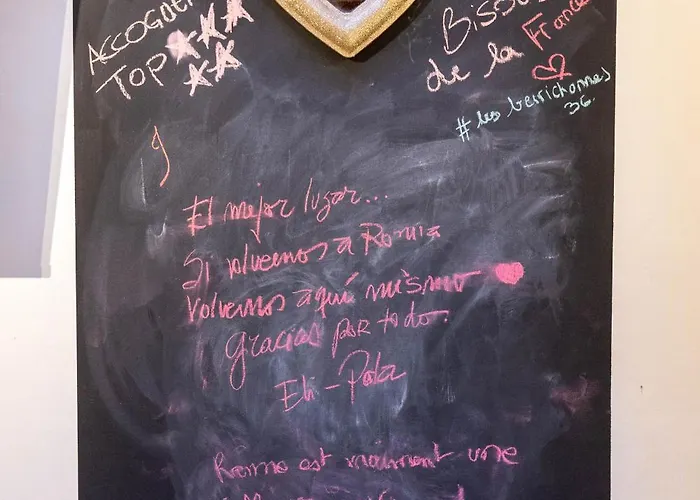 ACCOGLIEN
TOP
Bisous
de la France
#les berrichonnes
36.
El mejor lugar...
Si volvemos a Roma
volvemos aquí mismo
gracias por todo.
Eli - Pola
Rome est vraiment une